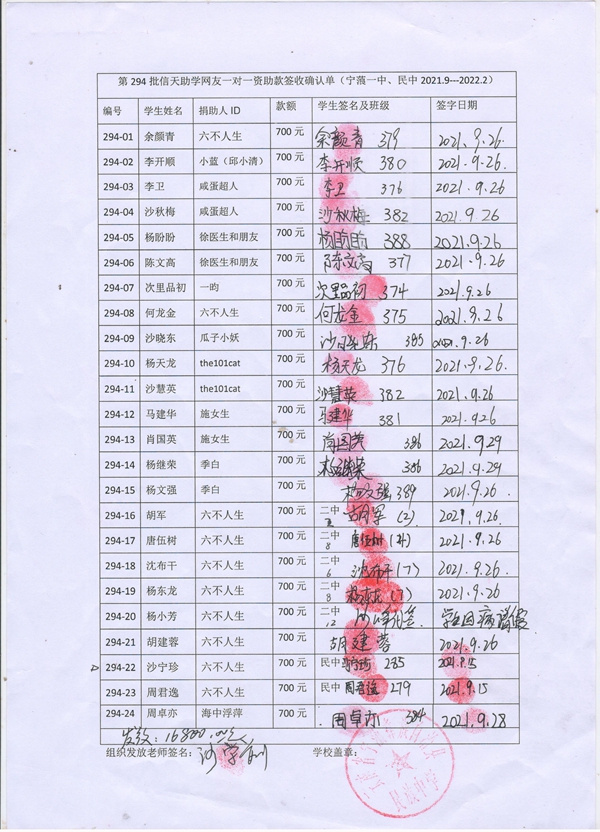 第 294 批信天助学网友一对一资助款签收确认单（宁蒗一中、民中 2021.9---2022.2）
编号 学生姓名 捐助人 ID 款额 学生签名及班级 签字日期
294-01 余颜青 六不人生 700 元 余颜青 379 2021.9.26
294-02 李开顺 小蓝（邱小清） 700 元 李开顺 380 2021.9.26.
294-03 李卫 咸蛋超人 700 元 李卫 376 2021.9.26
294-04 沙秋梅 咸蛋超人 700 元 沙秋梅 382 2021.9.26
294-05 杨盼盼 徐医生和朋友 700 元 杨盼盼 388 2021.9.26
294-06 陈文高 徐医生和朋友 700 元 陈文高 377 2021.9.26
294-07 次里品初 一昀 700 元 次里品初 374 2021.9.26
294-08 何龙金 六不人生 700 元 何龙金 375 2021.9.26
294-09 沙晓东 瓜子小妖 700 元 沙晓东 385 2021.9.26
294-10 杨天龙 the101cat 700 元 杨天龙 376 2021.9.26.
294-11 沙慧英 the101cat 700 元 沙慧英 382 2021.9.26
294-12 马建华 施女生 700 元 马建华 381 2021.9.26
294-13 肖国英 施女生 700 元 肖国英 386 2021.9.29
294-14 杨继荣 季白 700 元 杨继荣 386 2021.9.29
294-15 杨文强 季白 700 元 杨文强 389 2021.9.26.
294-16 胡军 六不人生 700 元 二中 胡军 (2) 2021.9.26.
294-17 唐伍树 六不人生 700 元 二中 8 唐伍树 2021.9.26
294-18 沈布干 六不人生 700 元 二中 6 沈布干 (7) 2021.9.26
294-19 杨东龙 六不人生 700 元 二中 8 杨东龙 (7) 2021.9.26
294-20 杨小芳 六不人生 700 元 二中 12 因病请假
294-21 胡建蓉 六不人生 700 元 胡建蓉 2021.9.26
294-22 沙宁珍 六不人生 700 元 民中 235 2021.9.15
294-23 周君逸 六不人生 700 元 民中 周君逸 279 2021.9.15
294-24 周卓亦 海中浮萍 700 元 周卓亦 384 2021.9.28
发放: 16800.
组织发放老师签名： 学校盖章：
民族中学